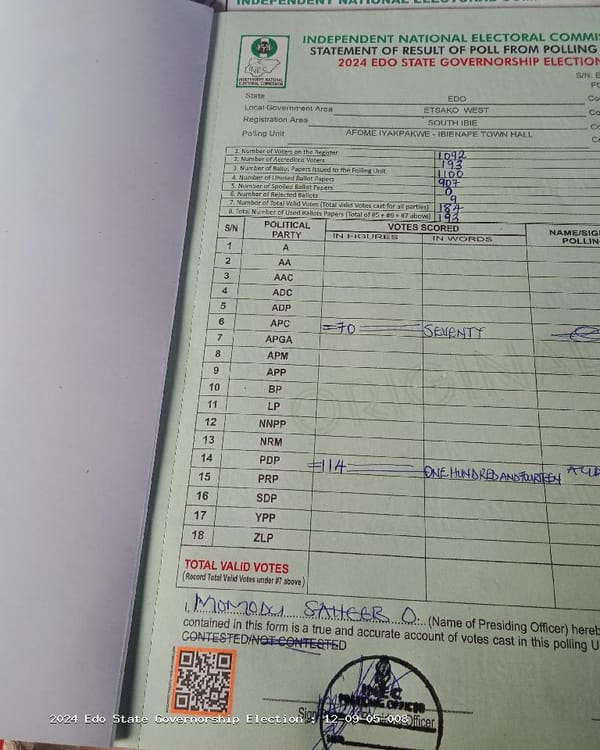 INDEPENDENT NATIONAL ELECTORAL COMMIS
STATEMENT OF RESULT OF POLL FROM POLLING
2024 EDO STATE GOVERNORSHIP ELECTION
INEC
INDEPENDENT NATIONAL
ELECTORAL COMMISSION
S/N: E
State EDO Co
Local Government Area ETSAKO WEST Co
Registration Area SOUTH IBIE Co
Polling Unit AFOME IYAKPAKWE - IBIENAFE TOWN HALL
1. Number of Voters on the Register 1092
2. Number of Accredited Voters 193
3. Number of Ballot Papers Issued to the Polling Unit 1100
4. Number of Unused Ballot Papers 907
5. Number of Spoiled Ballot Papers 0
6. Number of Rejected Ballots 9
7. Number of Total Valid Votes (Total Valid Votes cast for all parties) 184
8. Total Number of Used Ballots Papers (Total of #5 + #6 + #7 above) 193
S/N POLITICAL PARTY VOTES SCORED NAME/SIG
IN FIGURES IN WORDS POLLIN
1 A
2 AA
3 AAC
4 ADC
5 ADP
6 APC =70 SEVENTY
7 APGA
8 APM
9 APP
10 BP
11 LP
12 NNPP
13 NRM
14 PDP =114 ONE HUNDRED AND FOURTEEN
15 PRP
16 SDP
17 YPP
18 ZLP
ORIGINAL
TOTAL VALID VOTES
(Record Total Valid Votes under #7 above)
I, MOMODU SAHEER O. (Name of Presiding Officer) hereb
contained in this form is a true and accurate account of votes cast in this polling U
CONTESTED/NOT CONTESTED
INEC
PRESIDING OFFICER
Officer
2024 Edo State Governorship Election : 12-09-05-008